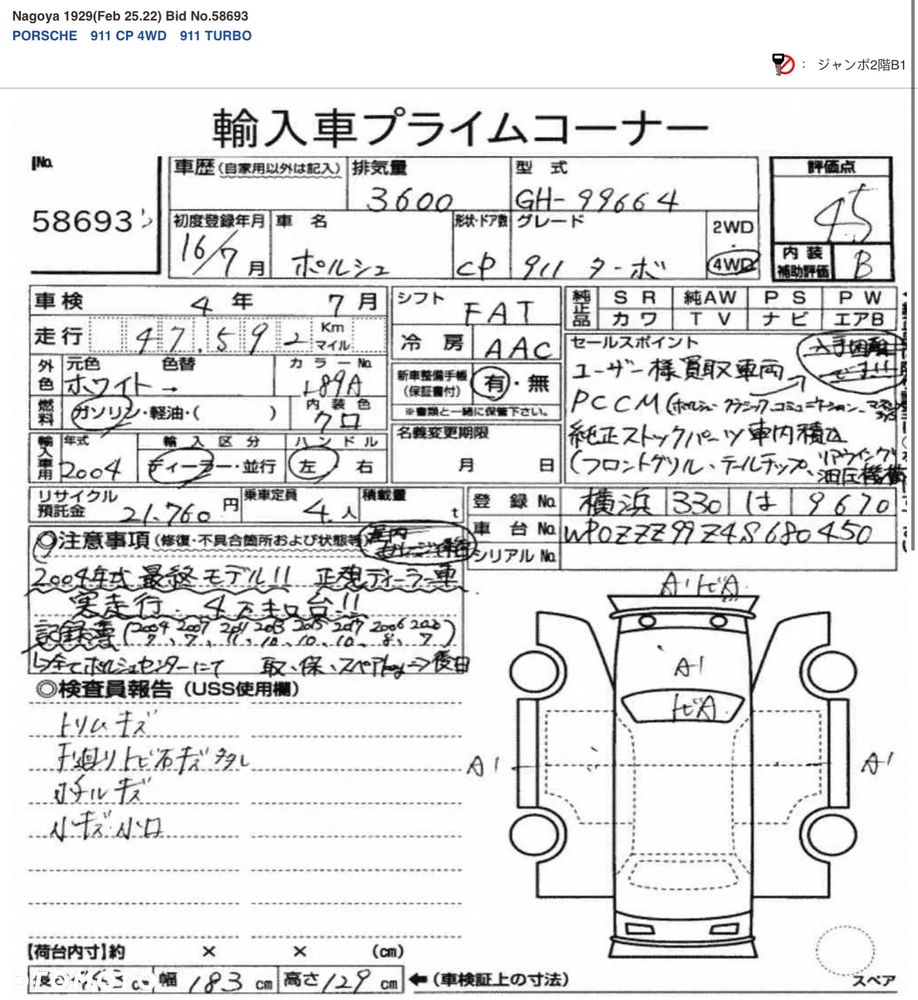 Nagoya 1929(Feb 25.22) Bid No.58693
PORSCHE 911 CP 4WD 911 TURBO
： ジャンボ2階B1
輸入車プライムコーナー
No. 58693
車歴 (自家用以外は記入) 排気量 3600 型式 GH-99664 評価点 45
初度登録年月 16/7月 車名 ポルシェ 形状・ドア数 CP グレード 911 ターボ 2WD 4WD
内装補助評価 B
車検 4年 7月 シフト FAT 純正品 SR 純AW PS PW
カワ TV ナビ エアB
走行 47,592 Km マイル 冷房 AAC
セールスポイント
外色 元色 ホワイト → 色替 カラーNo. L89A
新車整備手帳 (保証書付) 有・無
※書類と一緒に保管下さい。
ユーザー様買取車両 → 入手困難です!!
燃料 ガソリン・軽油・( ) 内装色 クロ
PCCM(ポルシェクラシックコミュニケーション
純正ストックパーツ車内積込
(フロントグリル、テールチップ、リアウイング
油圧機構
名義変更期限 月 日
輸入車用 年式 2004 輸入区分 ディーラー・並行 ハンドル 左 右
リサイクル預託金 21,760円 乗車定員 4人 積載量 t
登録No. 横浜 330 は 9670
車台No. WP0ZZZ99Z4S680450
シリアルNo.
◎注意事項 (修復・不具合箇所および状態等) 屋内
2004年式 最終モデル!! 正規ディーラー車
実走行 4万キロ台!!
記録簿 (2004/7、2007/7、2011/11、2013/10、2015/10、2017/10、2006/8、2020/7)
↳全てポルシェセンターにて 取・保・スペアkey→後日
◎検査員報告 (USS使用欄)
トリムキズ
下廻りトビ石キズ タタレ
ホイールキズ
小キズ小凹
A1 トビA
A1
トビA
A1
A1
【荷台内寸】約 × × (cm)
長 幅 183 cm 高さ 129 cm ←(車検証上の寸法)
スペア